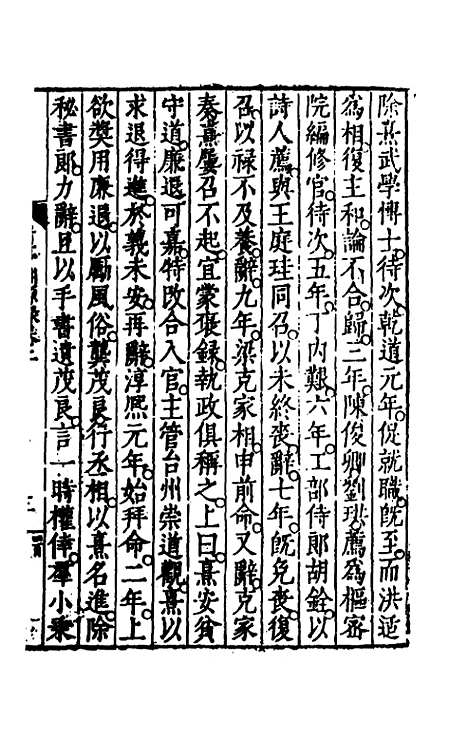 除熹武學博士待次乾道元年促就職既至而洪适
爲相復主和論不合歸三年陳俊卿劉珙薦爲樞密
院編修官待次五年丁内艱六年工部侍郎胡銓以
詩人薦與王庭珪同召以未終喪辭七年既免喪復
召以禄不及養辭九年梁克家相申前命又辭克家
奏熹屢召不起宜蒙褒録執政俱稱之上曰熹安貧
守道廉退可嘉特改合入官主管台州崇道觀熹以
求退得進於義未安再辭淳熙元年始拜命二年上
欲奬用廉退以勵風俗龔茂良行丞相以熹名進除
秘書郎力辭且以手書遺茂良言一時權倖羣小乘